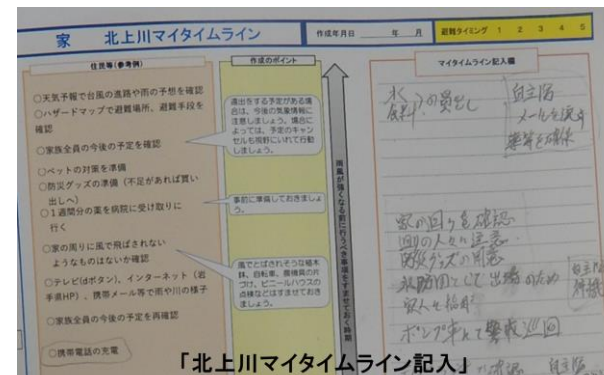 家 北上川マイタイムライン
作成年月日 年 月
避難タイミング 1 2 3 4 5
住民等(参考例)
○天気予報で台風の進路や雨の予想を確認
○ハザードマップで避難場所、避難手段を
確認
○家族全員の今後の予定を確認
○ペットの対策を準備
○防災グッズの準備(不足があれば買い
出しへ)
○1週間分の薬を病院に受け取りに
行く
○家の周りに風で飛ばされない
ようなものはないか確認
○テレビ(dボタン)、インターネット(岩
手県HP)、携帯メール等で雨や川の様子
○家族全員の今後の予定を再確認
○携帯電話の充電
作成のポイント
遠出をする予定がある場
合は、今後の気象情報に
注意しましょう。場合に
よっては、予定のキャン
セルも視野にいれて行動
しましょう。
事前に準備しておきましょ
う。
風でとばされそうな植木
鉢、自転車、農機具の片
づけ、ビニールハウスの
点検などはすませておき
ましょう。
雨風が強くなる前に行うべき事項をすませておく時期
マイタイムライン記入欄
水
食料 の買出し
自主防
メールを流す
家の回りを確認
回りの人々に注意
防災グッズの用意
水防団として出動のため
ポンプ車にて警戒巡回
自主防
「北上川マイタイムライン記入」